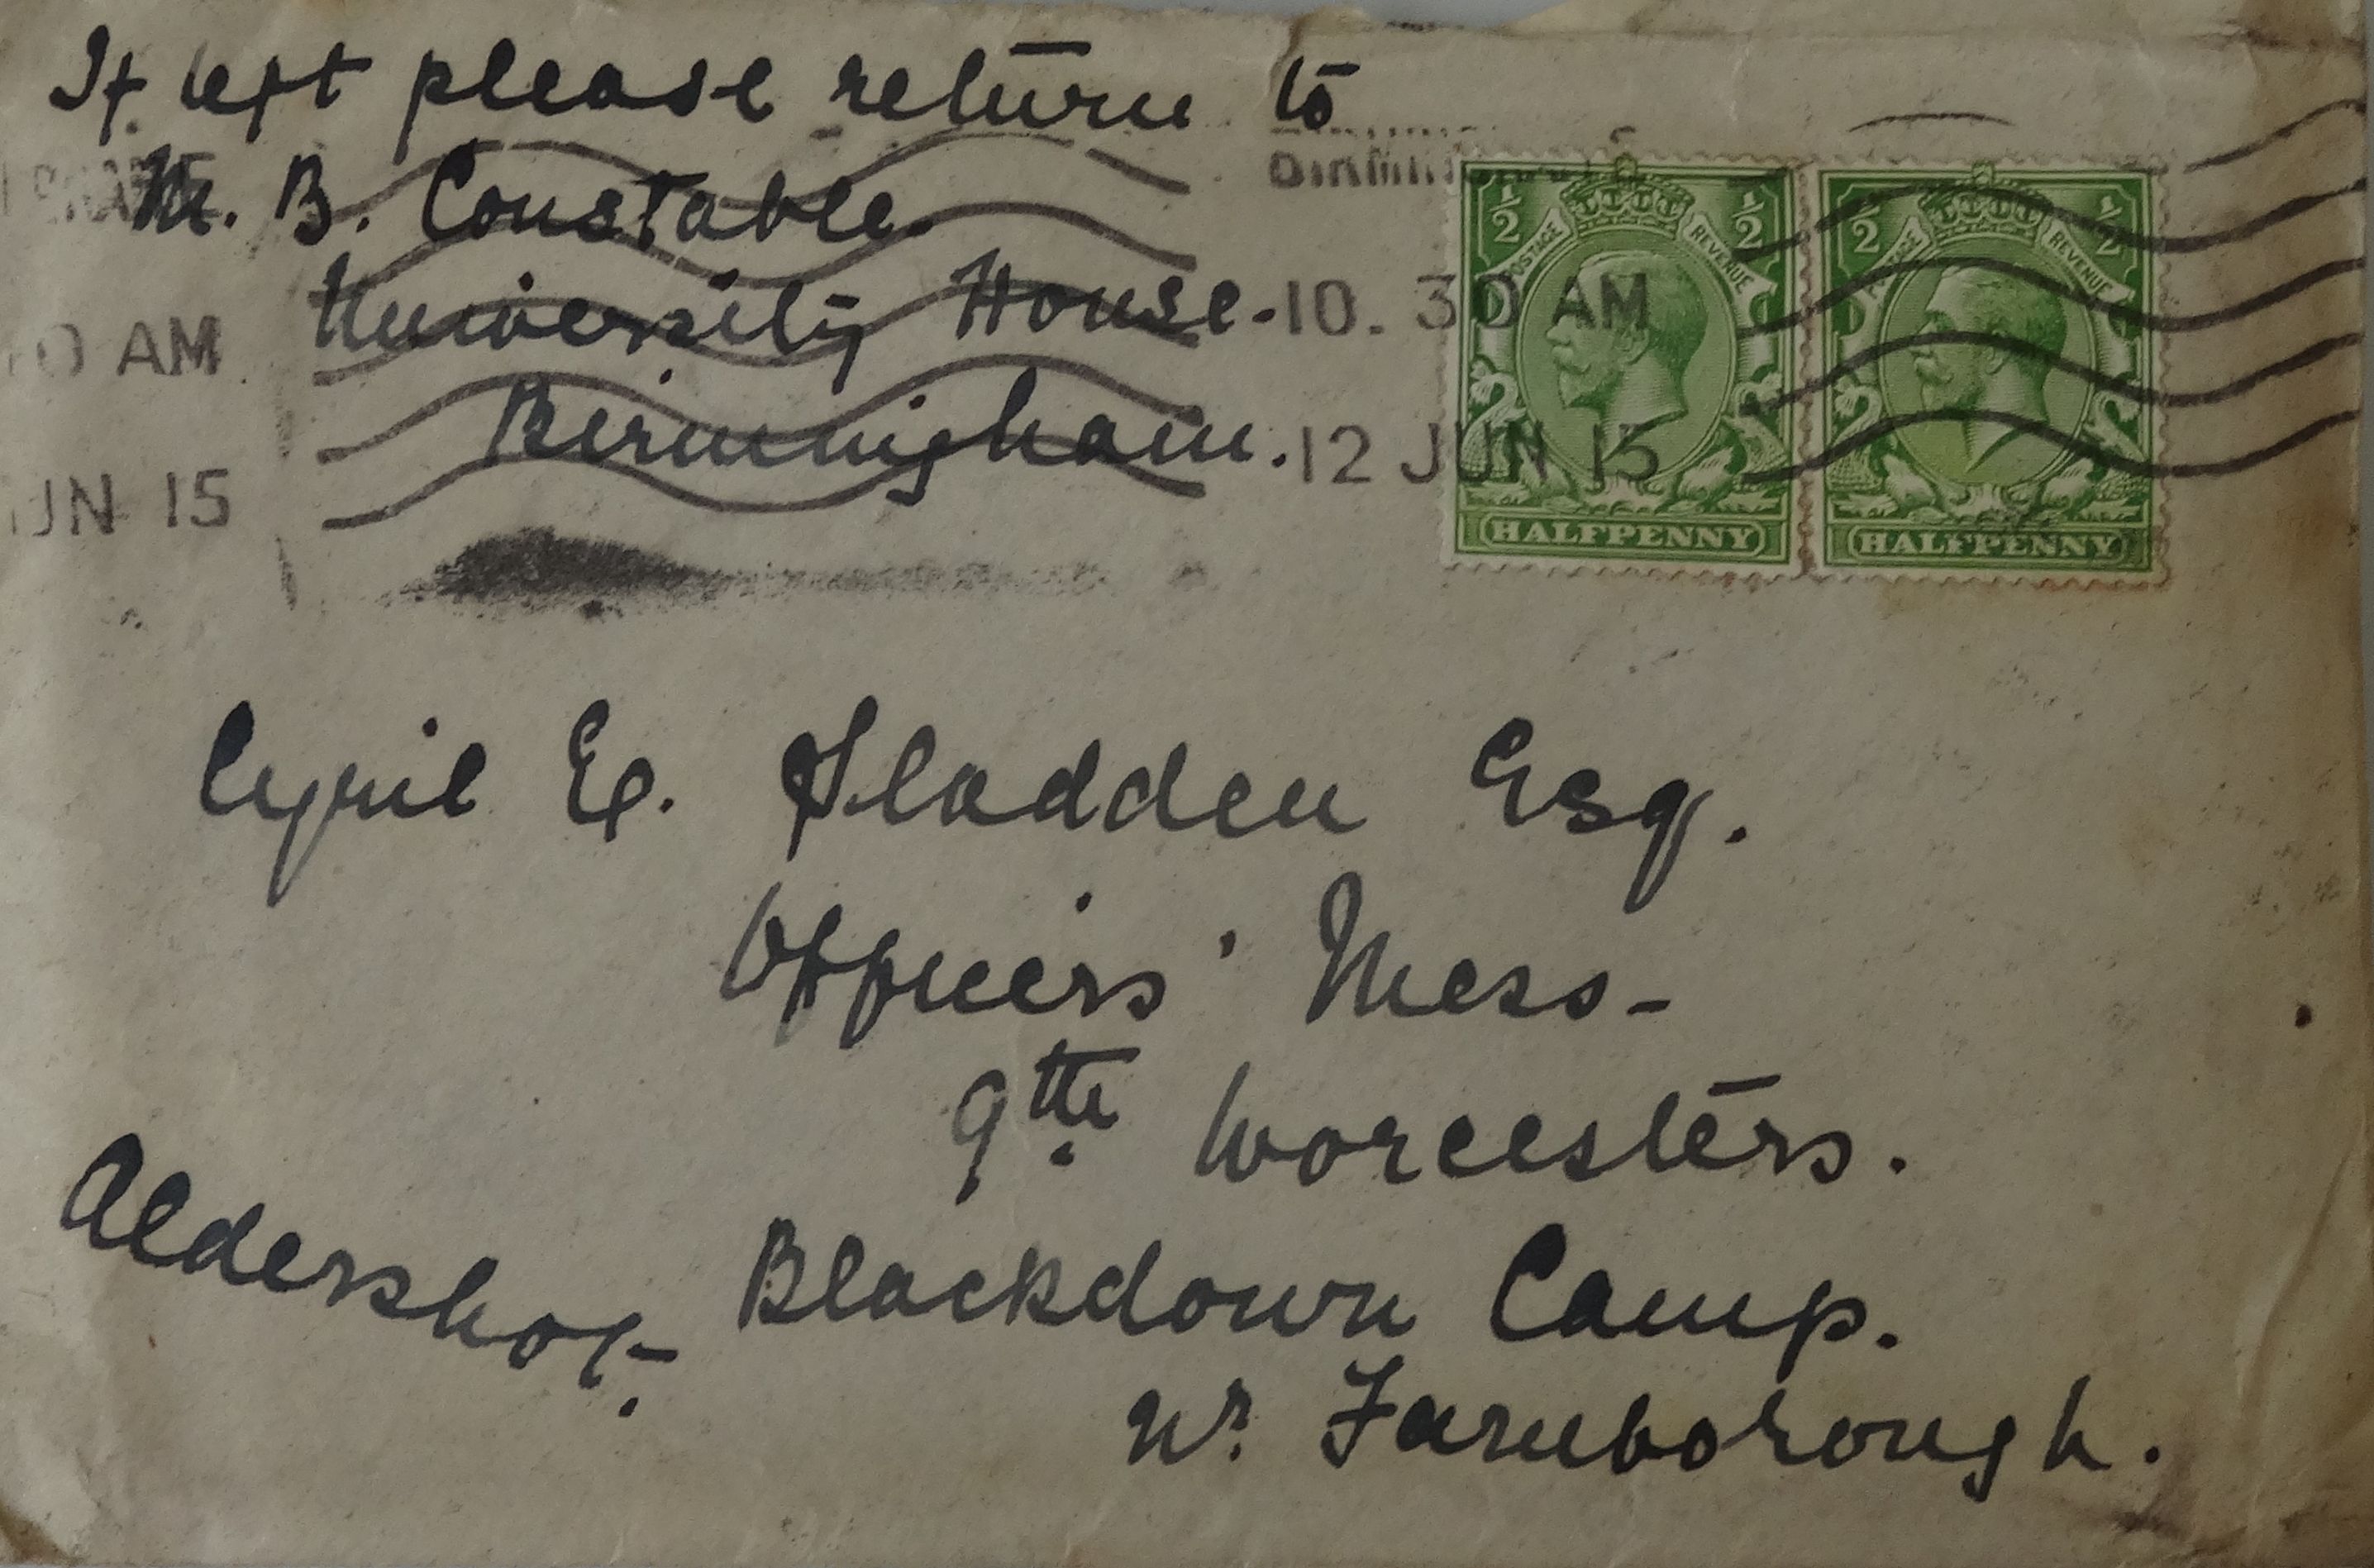 If left please return to
M. B. Constable.
University House.
Birmingham.
10. 30 AM
12 JUN 15
0 AM
UN 15
½ ½
POSTAGE REVENUE
HALFPENNY
½ ½
POSTAGE REVENUE
HALFPENNY
Cyril E. Sladden Esq.
Officers' Mess-
9th Worcesters.
Blackdown Camp.
Nr. Farnborough.
Aldershot.